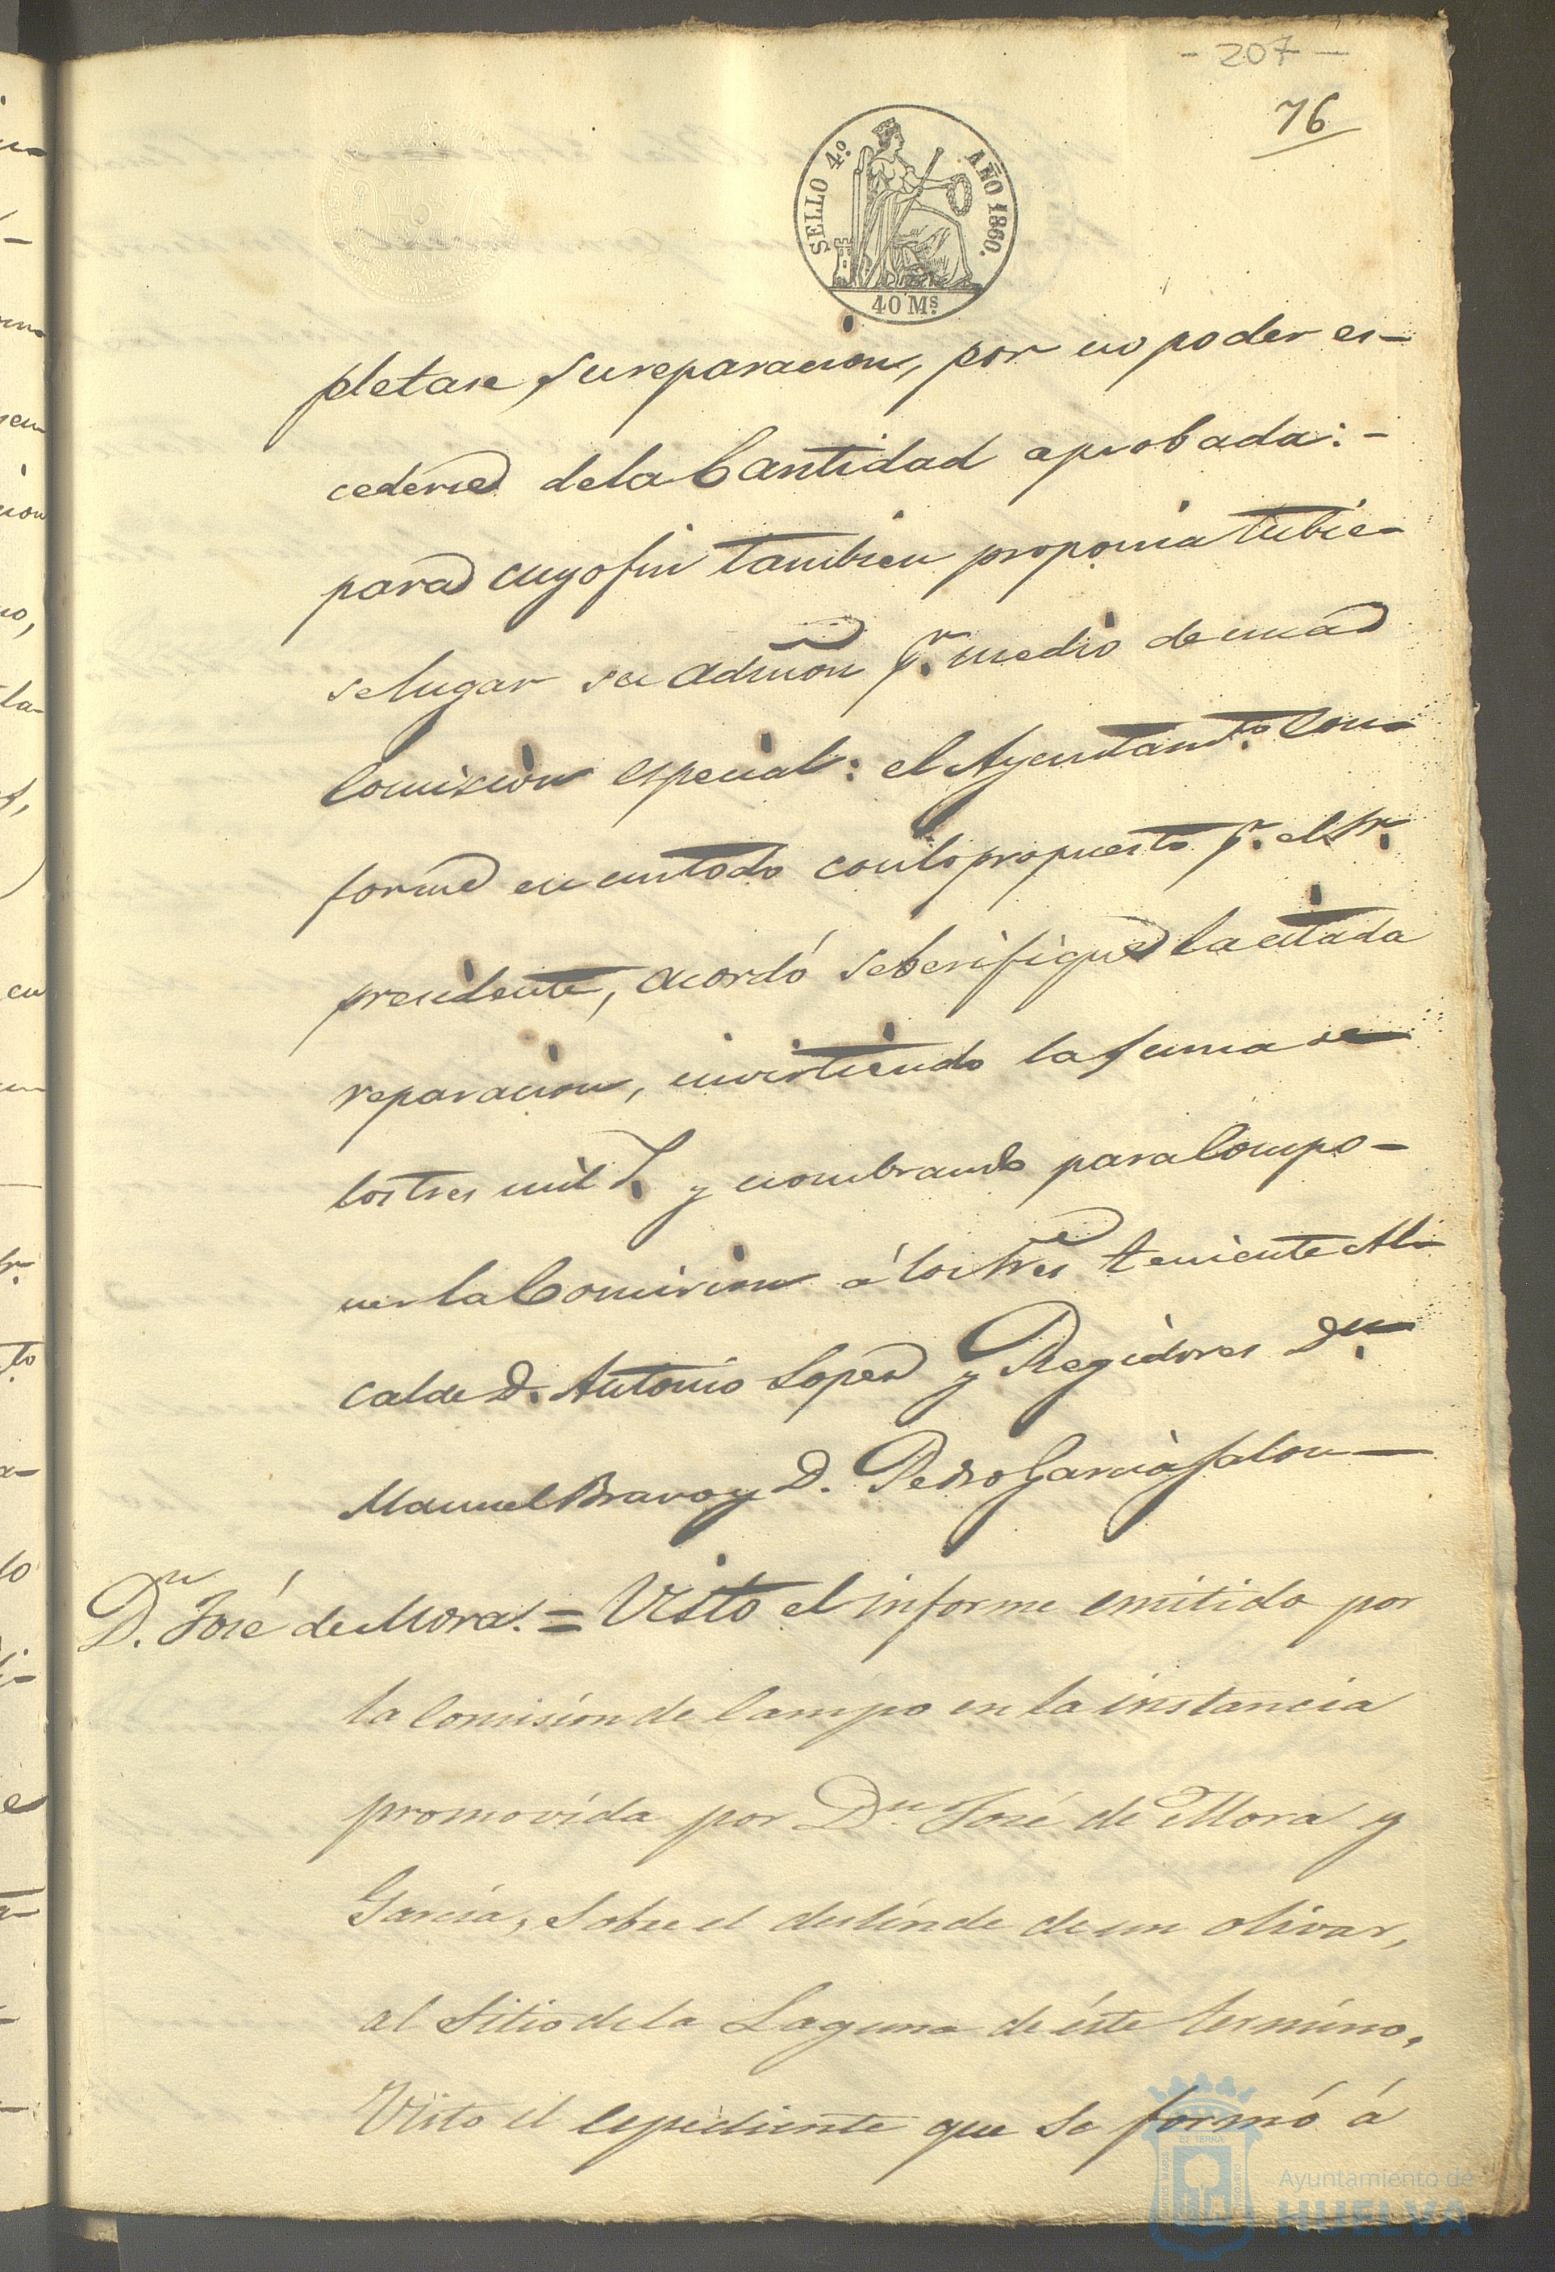 - 207 -
76
SELLO 4º AÑO 1860.
40 Ms.
pletase su reparacion, por no poder es-
cederse de la Cantidad aprobada: -
para cuyo fin tambien proponia tubie-
se lugar su admon pr. medio de una
Comision especial: el Ayuntamto. Con-
forme en un todo con lo propuesto pr. el Sr.
presidente, acordó se berifique la citada
reparacion, invirtiendo la suma de
los tres mil y nombrando para Compo-
ner la Comision á los Sres. teniente Al-
calde D. Antonio Lopez y Regidores Dn.
Manuel Bravo y D. Pedro Garcia Jalon
Dn. José de Mora. = Visto el informe emitido por
la Comision de Campo en la instancia
promovida por Dn. José de Mora y
García, sobre el deslinde de un olivar,
al Sitio de la Laguna de éste término.
Visto el espediente que se formó á
Ayuntamiento de
HUELVA